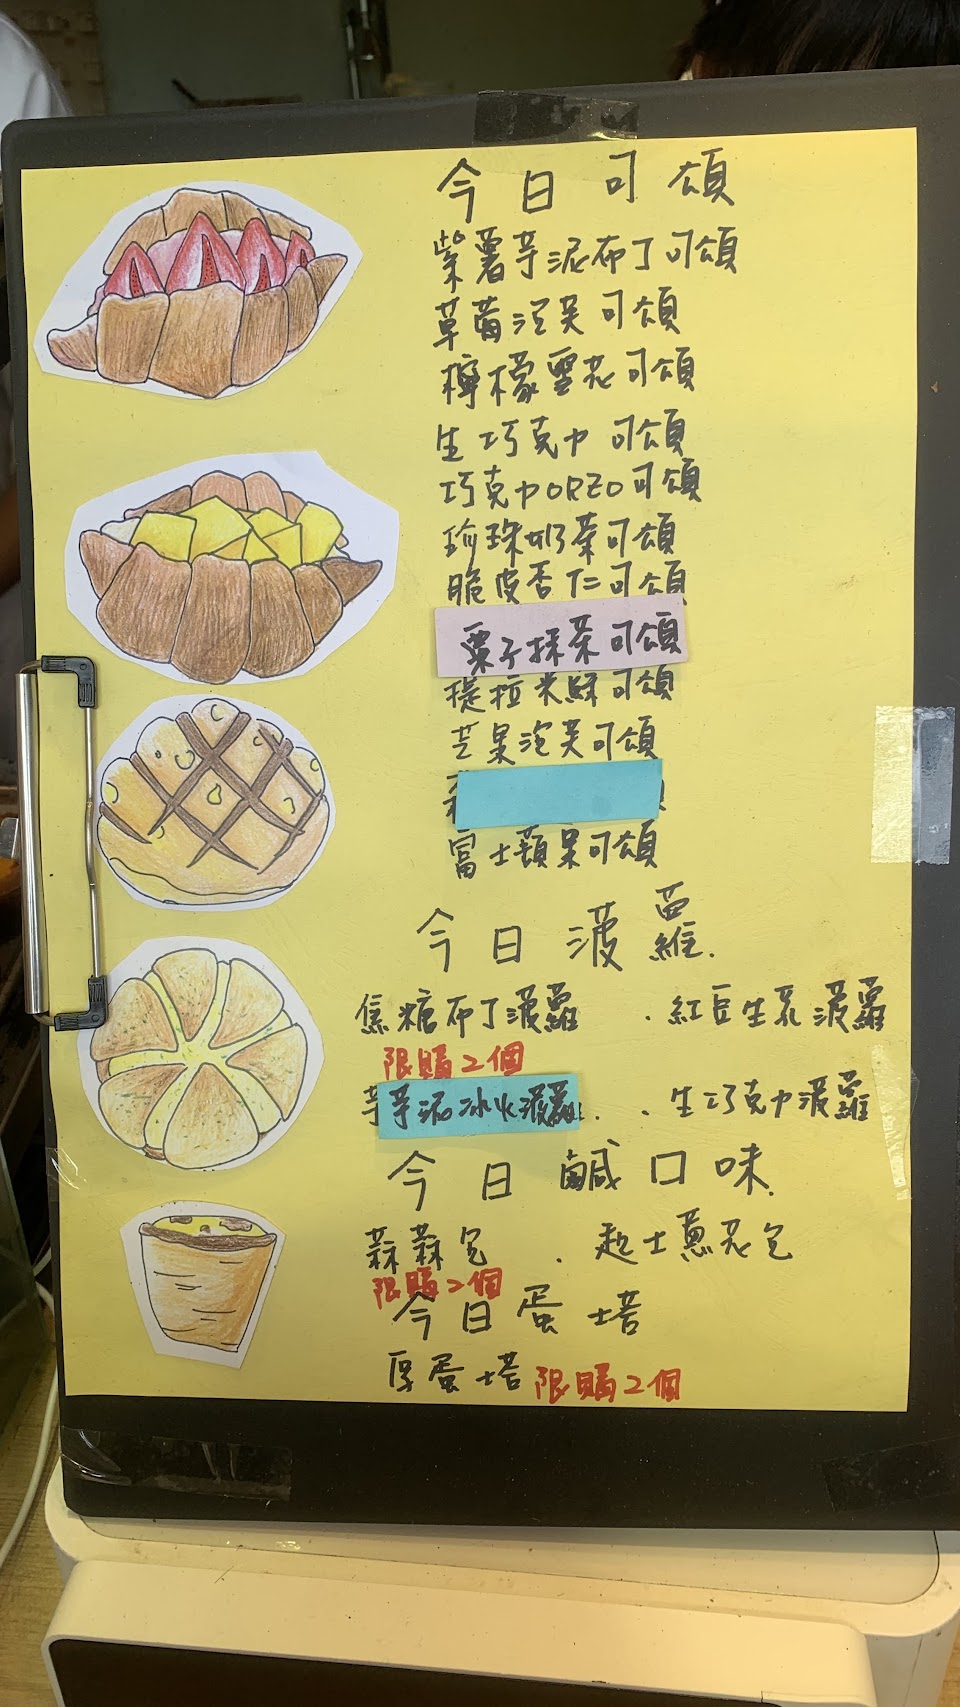 今日可頌
紫薯芋泥布丁可頌
草莓泡芙可頌
檸檬雪花可頌
生巧克力可頌
巧克力OREO可頌
珍珠奶茶可頌
脆皮杏仁可頌
栗子抹茶可頌
提拉米穌可頌
芒果泡芙可頌
富士蘋果可頌
今日菠蘿.
焦糖布丁菠蘿 .紅豆生乳菠蘿
限購2個
芋泥冰火菠蘿 . .生巧克力菠蘿
今日鹹口味.
蒜蒜包 .起士蔥花包
限購2個
今日蛋塔
厚蛋塔 限購2個